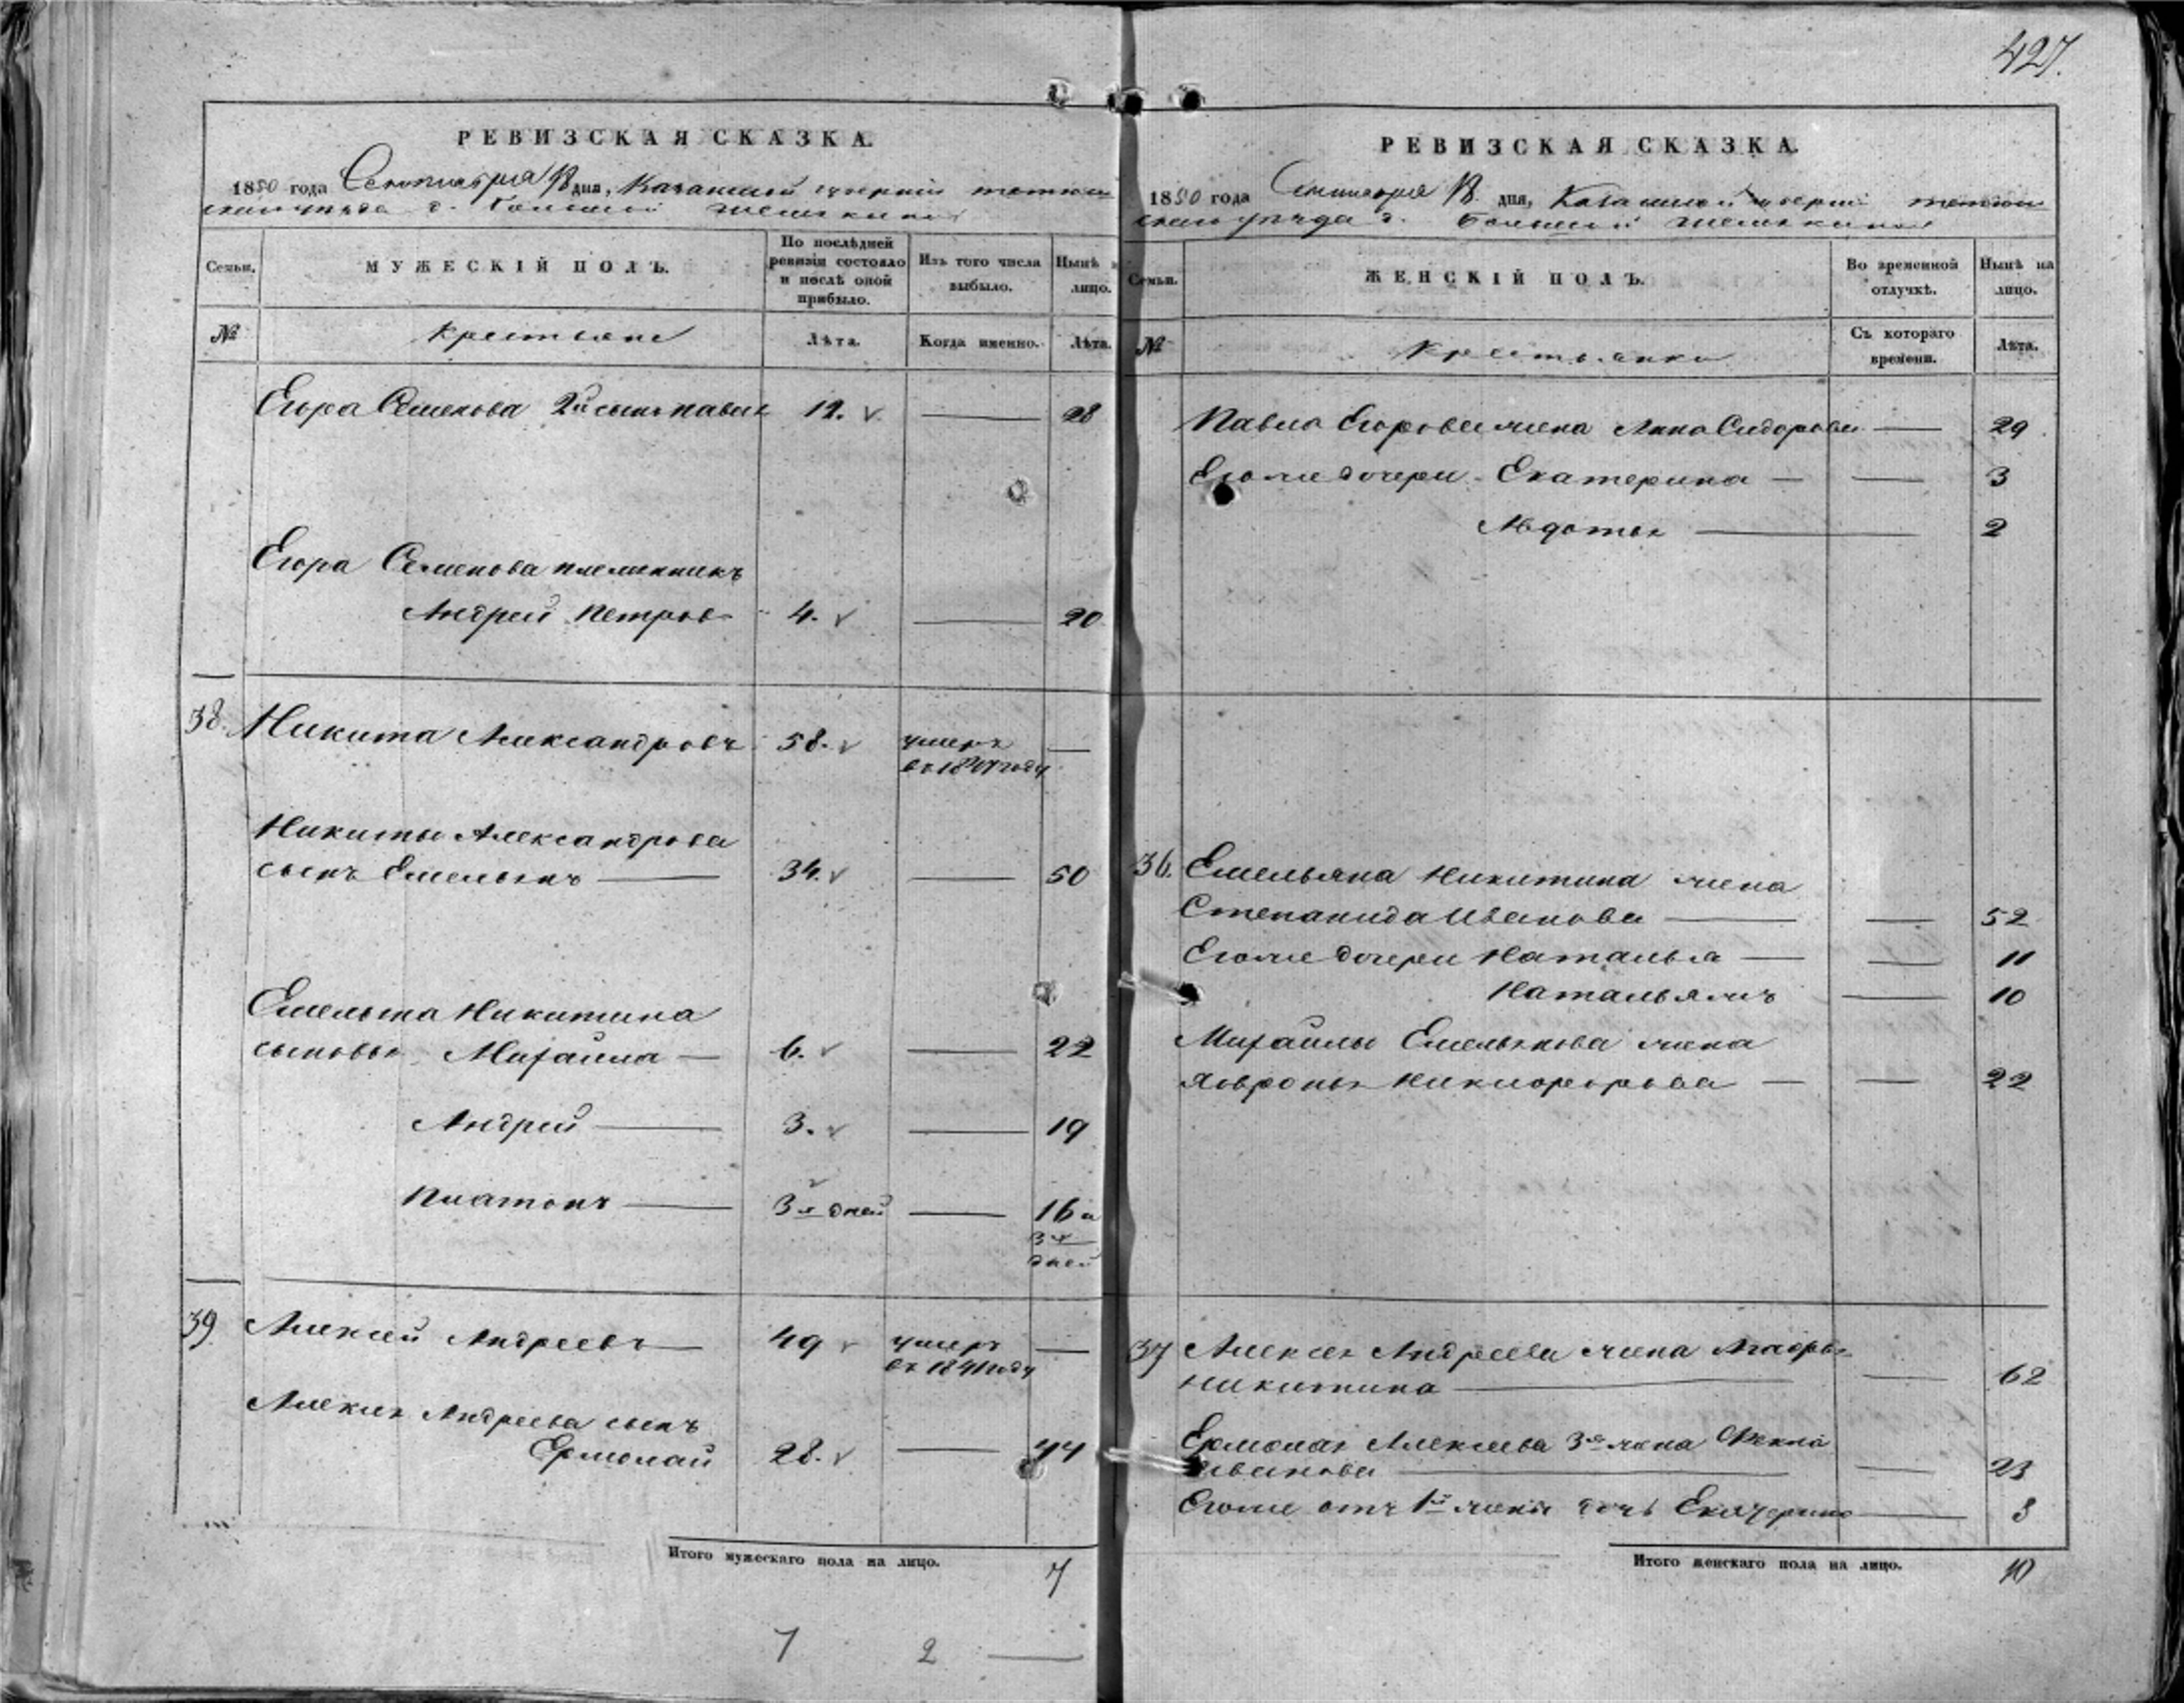 427.
РЕВИЗСКАЯ СКАЗКА.
1850 года Сентября 18 дня, Казанской губернии тетюш
скаго уезда д. Большой Шемякиной
Семьи. МУЖЕСКІЙ ПОЛЪ. По послѣдней ревизіи состояло и послѣ оной прибыло. Изъ того числа выбыло. Нынѣ на лицо.
№ крестьяне Лѣта. Когда именно. Лѣта.
Егора Семенова 2й сынъ павелъ 12. 28
Егора Семенова племянникъ
Андрей Петровъ 4. 20
38. Никита Александровъ 58. умеръ —
въ 18 году
Никиты Александрова
сынъ Емельянъ — 34. — 50
Емельяна Никитина
сыновья Михайла — 6. — 22
Андрей — 3. — 19
Платонъ — 3х дней — 16 и
3х
дней
39 Алексей Андреевъ — 49 умеръ —
въ 1841 году
Алексея Андреева сынъ
Ермолай 28. — 44
Итого мужескаго пола на лицо. 7
7 2 —
РЕВИЗСКАЯ СКАЗКА.
1850 года Сентября 18 дня, Казанской губерніи тетюш
скаго уезда д. Большой Шемякиной
Семьи. ЖЕНСКІЙ ПОЛЪ. Во временной отлучкѣ. Нынѣ на лицо.
№ Крестьянки Съ котораго времени. Лѣта.
Павла Егорова жена Анна Сидорова — 29
Егоже дочери Екатерина — — 3
Авдотья — 2
36. Емельяна Никитина жена
Степанида Иванова — — 52
Егоже дочери Наталья — — 11
Наталья жъ — 10
Михайлы Емельянова жена
Ховронья Никифорова — — 22
37 Алексея Андреева жена Агафья
Никитина — — 62
Ермолая Алексеева 3я жена Фекла
Иванова — — 23
Егоже отъ 1й жены дочь Екатерина — 8
Итого женскаго пола на лицо. 10